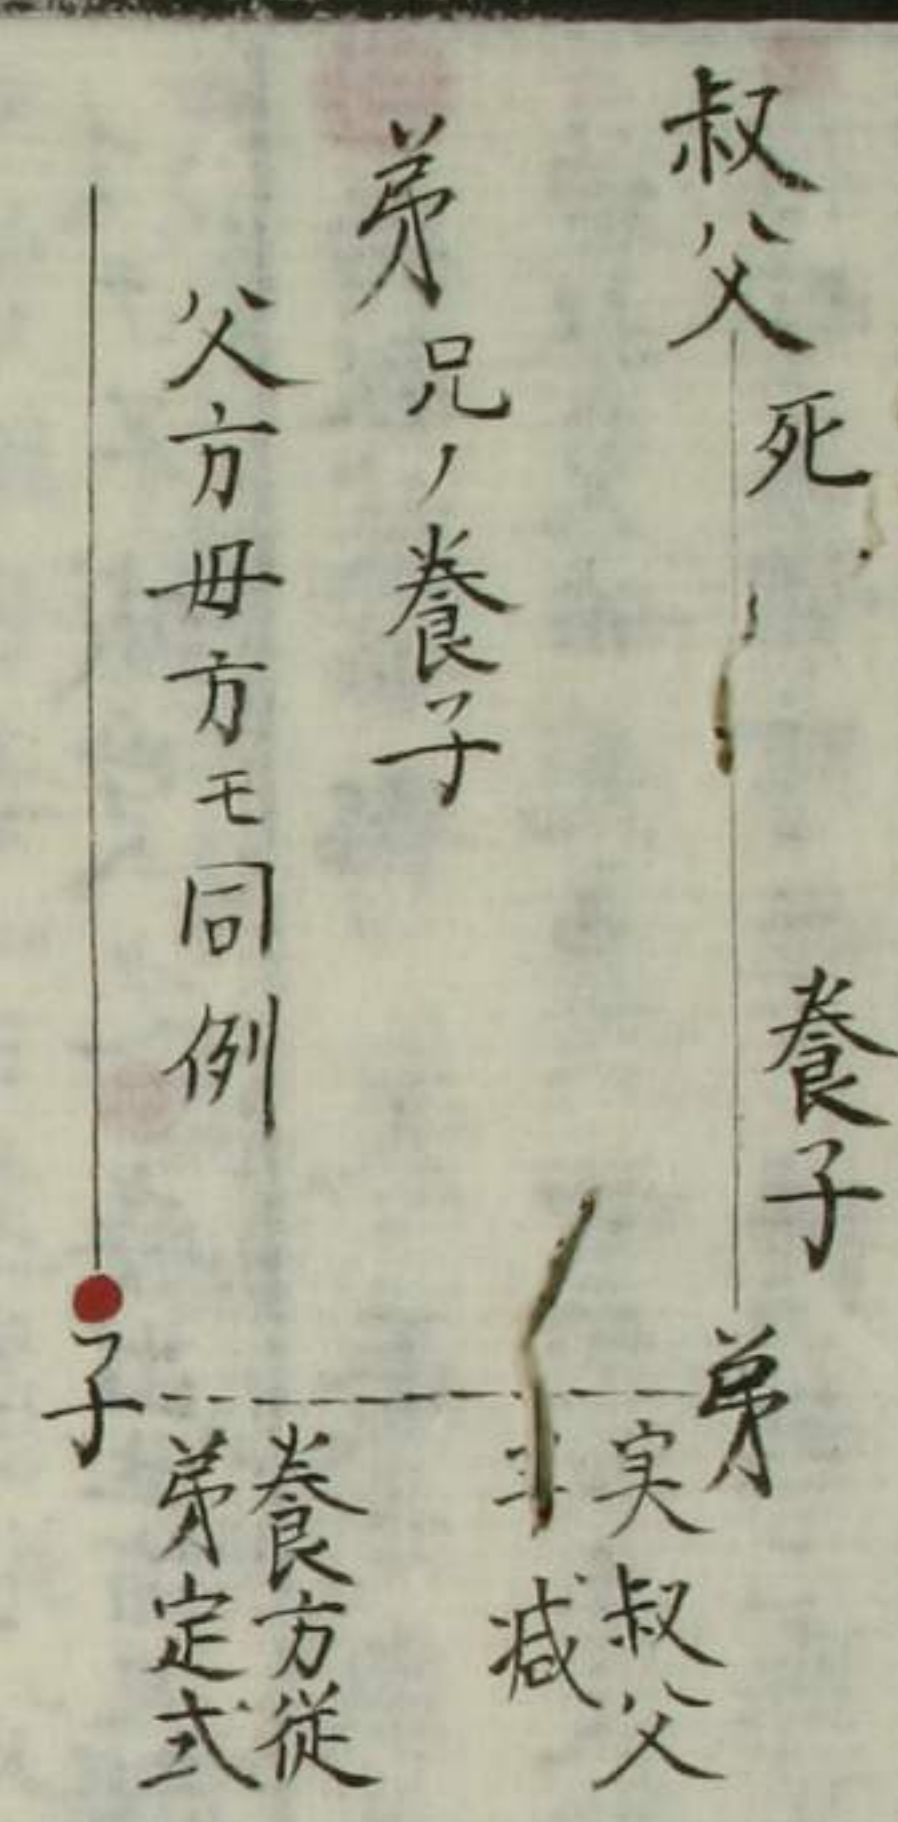 叔父
死
養子
弟
実叔父
半減
弟
兄ノ養子
父方母方モ同例
養方従
弟定式
子